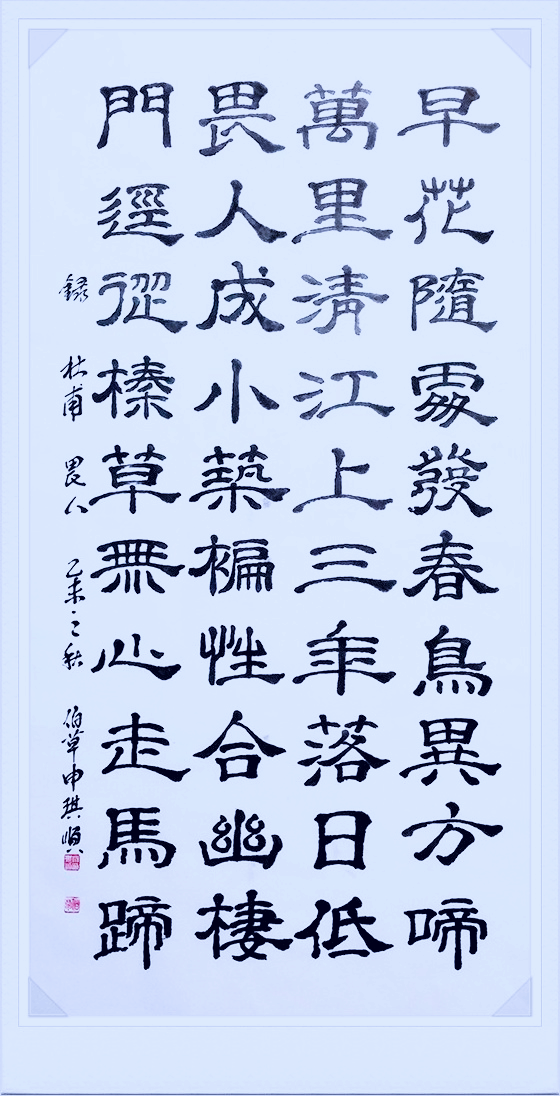 早花隨處發春鳥異方啼
萬里清江上三年落日低
畏人成小築褊性合幽棲
門逕從榛草無心走馬蹄
錄 杜甫 畏人 乙未之秋 伯草申琪順